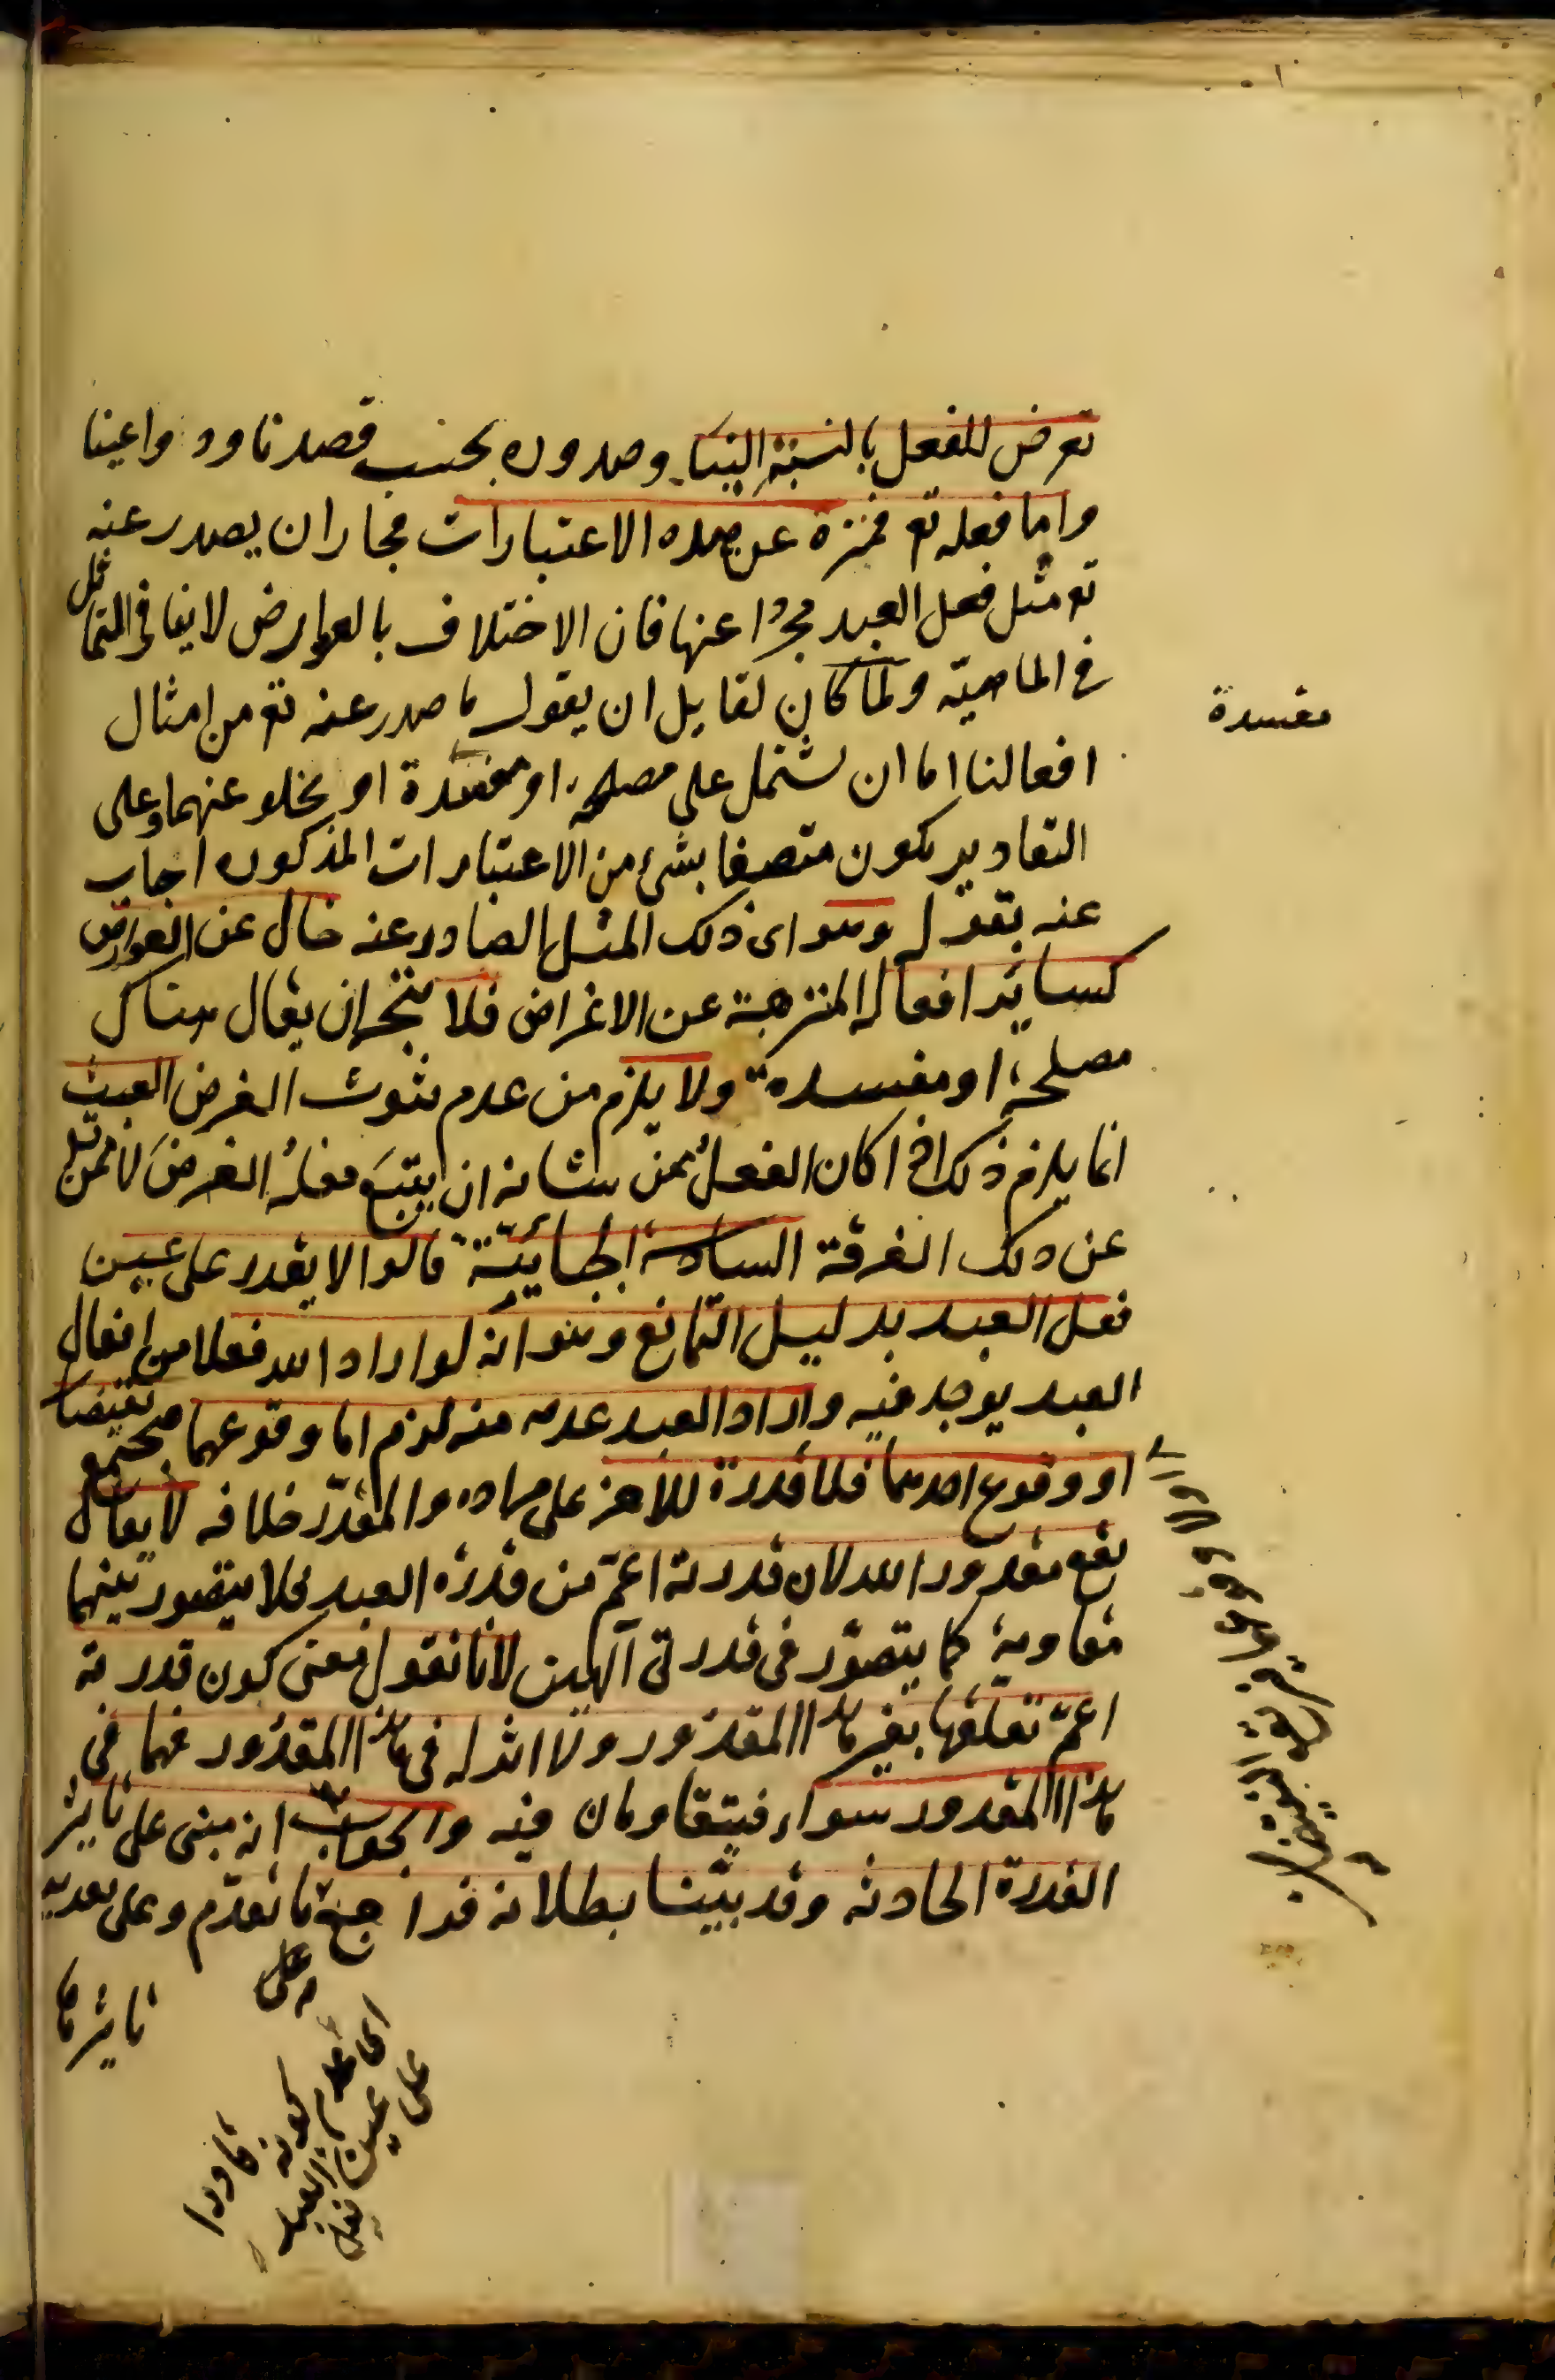 تعرض للفعل بالنسبة الينا وصدوره بحسب قصدنا ودواعينا
واما فعله تع فمنزه عن هذه الاعتبارات فجاز ان يصدر عنه
تع مثل فعل العبد مجردا عنها فان الاختلاف بالعوارض لا ينافى التماثل
فى الماهية ولما كان لقايل ان يقول ما صدر عنه تع من امثال
افعالنا اما ان يشتمل على مصلحة او مفسدة او يخلو عنهما وعلى
التقادير يكون متصفا بشئ من الاعتبارات المذكوره اجاب
عنه بقوله وهو اى ذلك المثل الصادر عنه خال عن العوارض
كساير افعاله المنزهة عن الاغراض فلا يتجه ان يقال هناك
مصلحة او مفسدة ولا يلزم من عدم ثبوت الغرض العبث
انما يلزم ذلك اذا كان الفعل ممن شانه ان يتبع فعله الغرض لا ممن تعالى
عن ذلك الفرقة السادسة الجبائية قالوا لا يقدر على عين
فعل العبد بدليل التمانع وهو انه لو اراد الله فعلا من افعال
العبد يوجد فيه واراد العبد عدمه منه لزم اما وقوعهما فيجتمع النقيضان
او وقوع احدهما فلا قدرة للاخر على مراده والمقدر خلافه لا يقال
يقع مقدور الله لان قدرته اعم من قدرة العبد فلا يتصور بينهما
مقاومة كما يتصور فى قدرتى الهين لانا نقول معنى كون قدرته
اعم تعلقها بغير هذا المقدور ولا اثر له فى هذا المقدور فهما فى
هذا المقدور سواء فيتقاومان فيه والجواب انه مبنى على تاثير
القدرة الحادثه وقد بينا بطلانه فراجع ما تقدم وعلى تقدير
تاثيرها
مفسدة
وعلى
اى عدم كونه قادرا
على عين فعل العبد